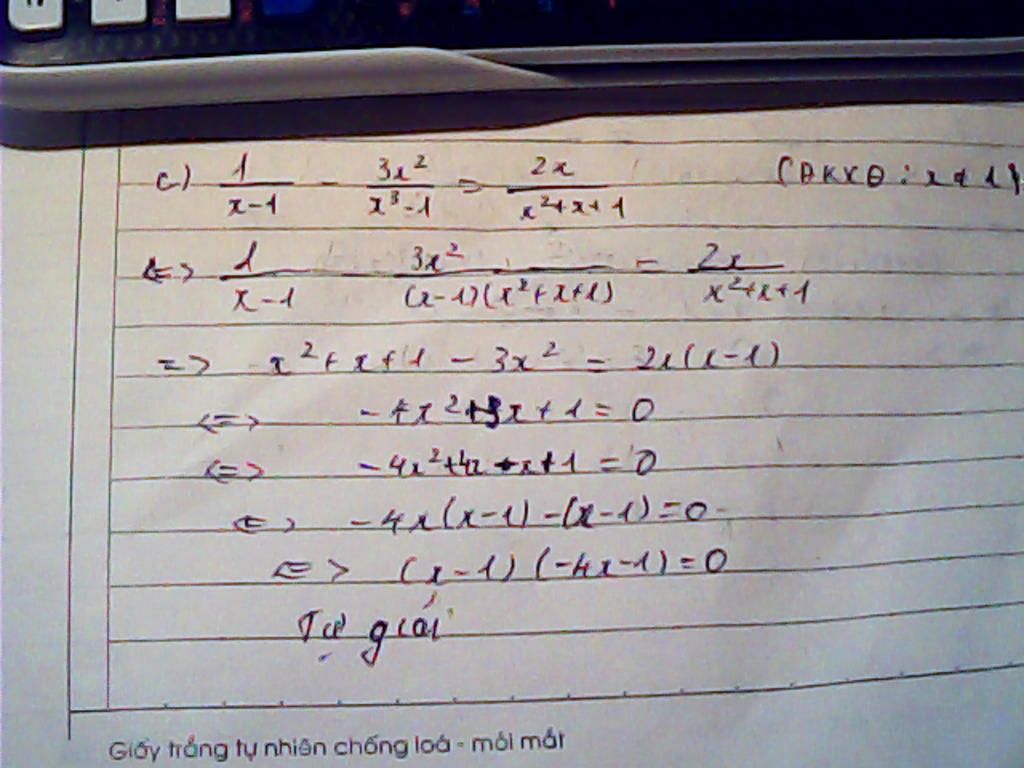 c) 1/(x-1) - 3x²/(x³-1) = 2x/(x²+x+1) (ĐKXĐ: x ≠ 1)
<=> 1/(x-1) - 3x²/((x-1)(x²+x+1)) = 2x/(x²+x+1)
=> x²+x+1 - 3x² = 2x(x-1)
<=> -4x²+3x+1=0
<=> -4x²+4x-x+1=0
<=> -4x(x-1)-(x-1)=0
<=> (x-1)(-4x-1)=0
Tự giải
Giấy trắng tự nhiên chống loá - mỏi mắt